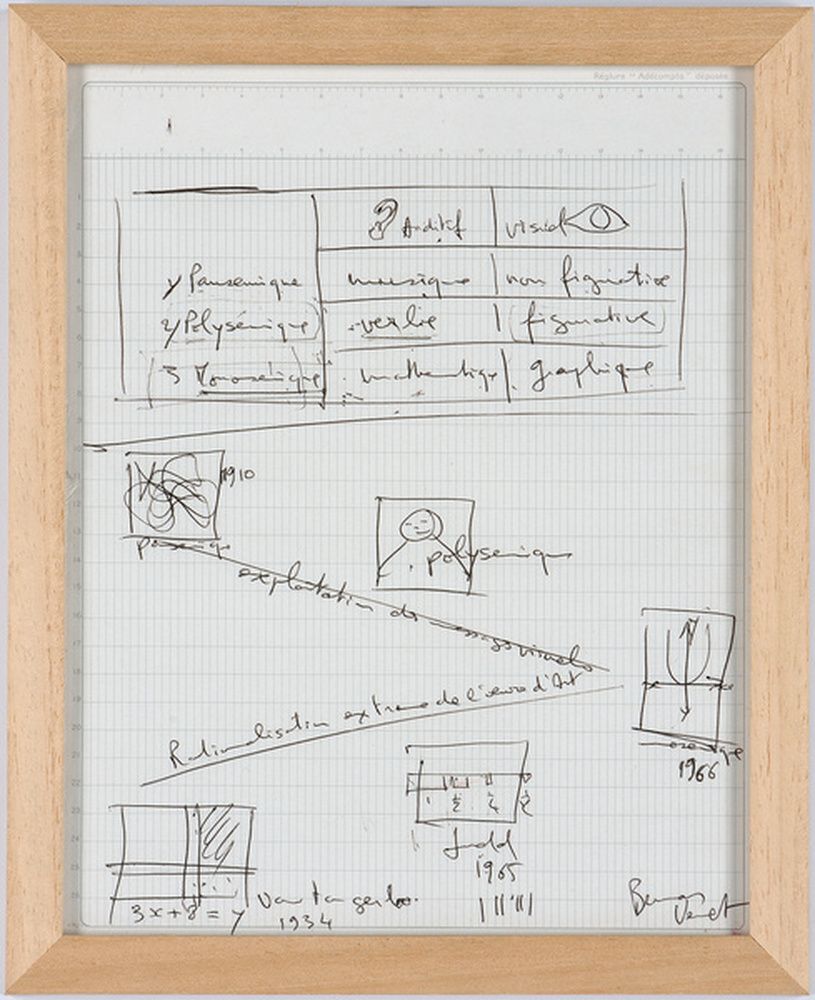 Réglure "Adécompta" déposée
Auditif visuel
1/ Pansemique musique non figurative
2/ Polysémique verbe figurative
3 Monosémique mathématique graphique
1910
pansemique
polysemique
exploitation des messages visuels
Rationalisation extreme de l'œuvre d'Art
monosemique
1966
1 2 4 2
Judd
1965
3x + 8 = y Vantongerloo.
1934
Bernar
Venet